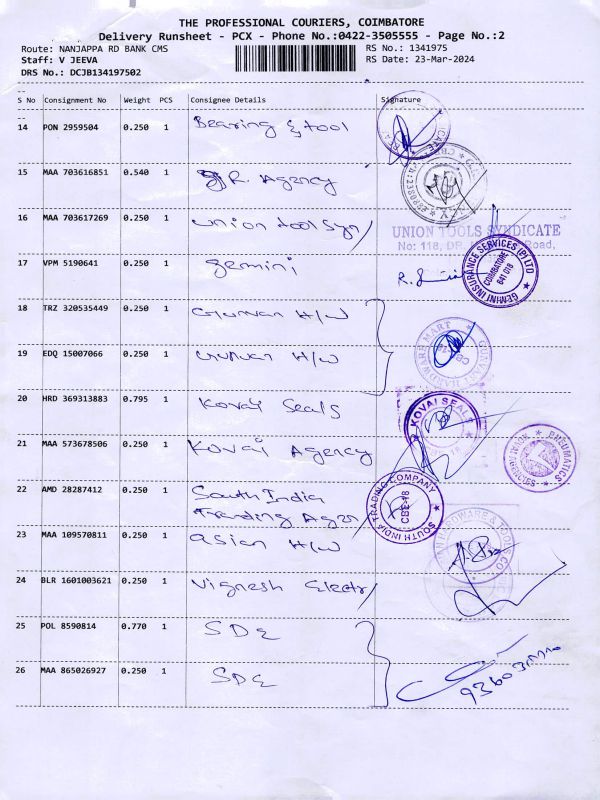 THE PROFESSIONAL COURIERS, COIMBATORE
Delivery Runsheet - PCX - Phone No.:0422-3505555 - Page No.:2
Route: NANJAPPA RD BANK CMS RS No.: 1341975
Staff: V JEEVA RS Date: 23-Mar-2024
DRS No.: DCJB134197502
S No Consignment No Weight PCS Consignee Details Signature
14 PON 2959504 0.250 1 Bearing & tool
15 MAA 703616851 0.540 1 R. Agency
16 MAA 703617269 0.250 1 Union tool Syn
UNION TOOLS SYNDICATE
No: 118, DR. Road,
17 VPM 5190641 0.250 1 gemini
GEMINI INSURANCE SERVICES (P) LTD
COIMBATORE
641 018
18 TRZ 320535449 0.250 1 Gurvan H/W
19 EDQ 15007066 0.250 1 Gurvan H/W
HARDWARE MART
20 HRD 369313883 0.795 1 Kovai Seals
KOVAI SEALS
21 MAA 573678506 0.250 1 Kovai Agency
PNEUMATICS
AGENCIES
22 AMD 28287412 0.250 1 South India
Trading Agen
SOUTH INDIA TRADING COMPANY
CBE-18
23 MAA 109570811 0.250 1 asian H/W
HARDWARE & TOOLS CO
24 BLR 1601003621 0.250 1 Vignesh Electr
25 POL 8590814 0.770 1 SDE
26 MAA 865026927 0.250 1 SDE